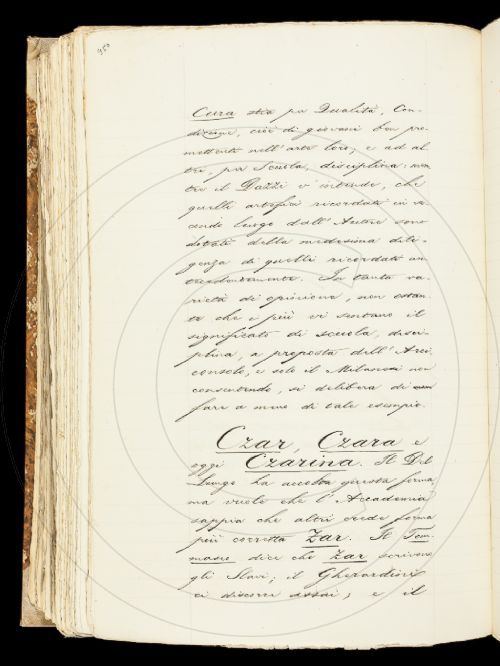 950
Cura stia per Qualità, Con-
dizione, cioè di giovani ben pro-
mettenti nell'arte loro; e ad al-
tri, per Scuola, disciplina: men-
tre il Dazzi v'intende, che
quelli artefici ricordati in se-
condo luogo dall'Autore sono
dotati della medesima dili-
genza di quelli ricordati an-
tecedentemente. In tanta va-
rietà di opinione, non ostan-
te che i più vi sentano il
significato di scuola, disci-
plina, a proposta dell'Arci-
consolo, e solo il Milanesi non
consentendo, si delibera di
fare a meno di tale esempio.
Czar, Czara e
oggi Czarina. Il Del
Lungo ha accolta questa forma
ma vuole che l'Accademia
sappia che altri crede forma
più corretta Zar. Il Tom-
maseo dice che Zar scrivono
gli Slavi; il Gherardini
ci discorre assai; e il